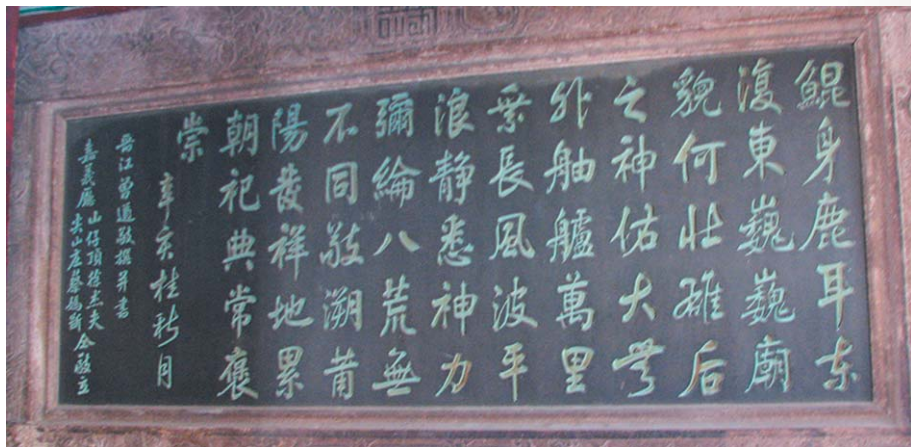 鯤身鹿耳东
復東巍巍廟
貌何壯雄后
之神佑大無
外舳艫萬里
乗長風波平
浪静悉神力
彌綸八荒無
不同敬溯莆
陽發祥地累
朝祀典常褒
崇
辛亥桂秋月
晉江曾遒敬撰并書
嘉義廳山仔頂徐杰夫
尖山庄蔡 仝敬立